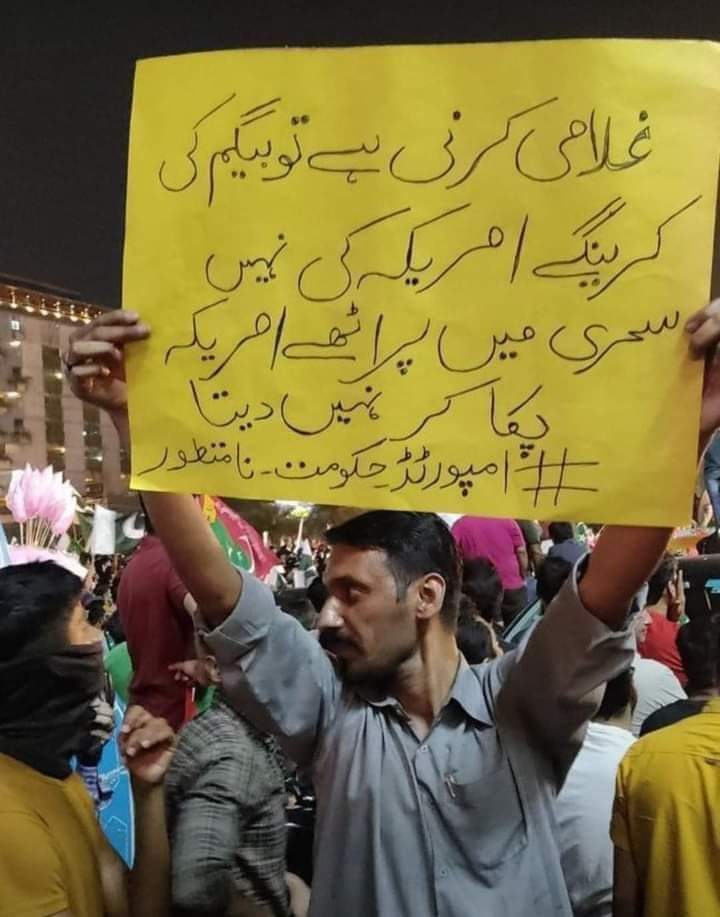 غلامی کرنی ہے تو بیگم کی
کرینگے امریکہ کی نہیں
سحری میں پراٹھے امریکہ
پکا کر نہیں دیتا
#امپورٹڈ حکومت-نامنظور